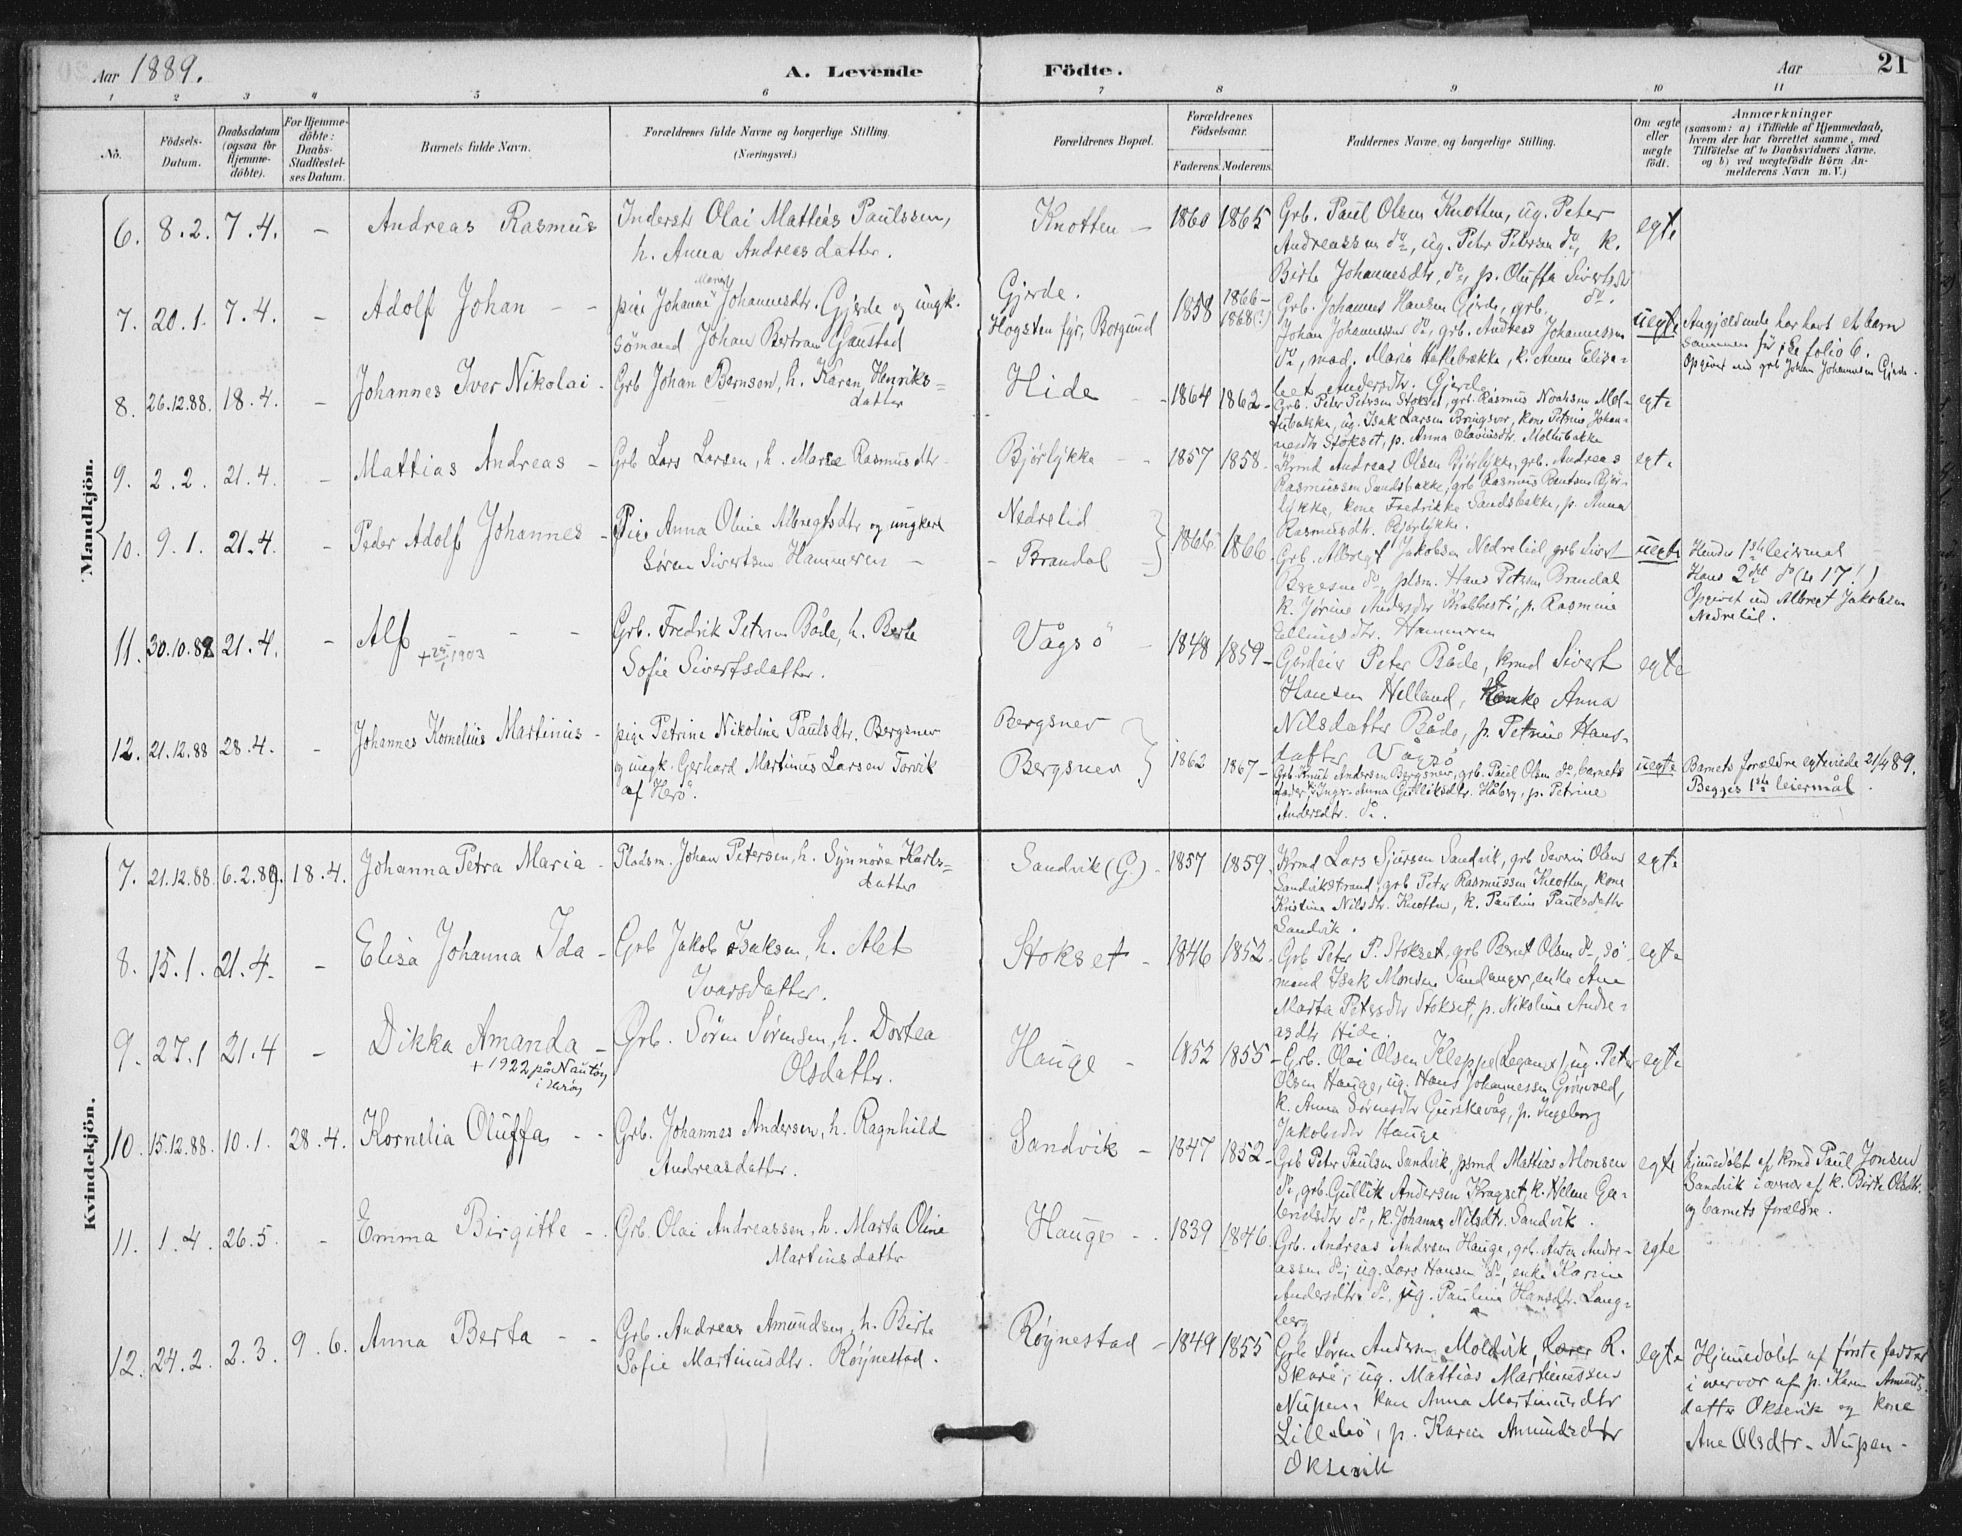 Aar 1889.
A. Levende Födte.
Aar
21
1 2 3 4 5 6 7 8 9 10 11
No.
Födsels-Datum.
Daabsdatum (ogsaa for Hjemme-döbte).
For Hjemme-döbte: Daabs-Stadfæstel-ses Datum.
Barnets fulde Navn.
Forældrenes fulde Navne og borgerlige Stilling.
(Næringsvei.)
Forældrenes Bopæl.
Forældrenes Födselsaar.
Faderens. Moderens.
Faddernes Navne, og borgerlige Stilling.
Om ægte eller uægte födt.
Anmærkninger
(saasom: a) i Tilfælde af Hjemmedaab,
hvem der har forrettet samme, med
Tilföielse af to Daabsvidners Navne,
og b) ved uægtefödte Börn An-
melderens Navn m. V.)
Mandkjön.
6. 8.2. 7.4. – Andreas Rasmus
Inderst Olai Mattias Paulssen,
h. Anna Andreasdatter.
Knotten – 1860 1865
Grb. Paul Olsen Knotten, ug. Peter
Andreassen do, ug. Peter Petersen do, k.
Birte Johannesdtr. do, p. Oluffa Sivertsdtr
do.
egte
7. 20.1. 7.4. – Adolf Johan – –
pige Johanne Johannesdtr. Gjerde og ungk.
Sömand Johan Bertram Ganstad
Gjerde.
Hogsten fyr, Borgund
1858 1866–
1868(?)
Grb. Johannes Hansen Gjerde, grb.
Johan Johannessen do, grb. Andreas Johannessen
do, mad. Maria Hakkebakke, k. Anne Elisa-
bet Andersdtr. Gjerde
uegte
Angjældende har havt et barn
sammen för, se folio 6.
Opgivet ved grb Johan Johannesen Gjerde.
8. 26.12.88. 18.4. – Johannes Iver Nikolai –
Grb Johan Bernsen, h. Karen Henriks-
datter
Hide – 1864 1862–
Grb. Peter Petersen Stokset, grb. Rasmus Noahsen Mol-
tubakke, ug. Isak Larsen Bringsvor, kone Petrine Johan-
nesdtr Stokset, p. Anna Olavusdtr. Moltubakke
egte
9. 2.2. 21.4. – Mattias Andreas –
Grb Lars Larsen, h. Marie Rasmusdtr
Bjørlykke – 1857 1858.
Krmd Andreas Olsen Bjørlykke, grb. Andreas
Rasmussen Sandsbakke, grb Rasmus Bentsen Bjør-
lykke, kone Fredrikke Sandsbakke, p. Anna
Rasmusdtr. Bjørlykke.
egte
10. 9.1. 21.4. – Peder Adolf Johannes –
Pige Anna Oline Albregtsdtr og ungkarl
Søren Sivertsen Hammeren –
Nedrelid
– Brandal
1866 1866
Grb. Albregt Jakobsen Nedrelid, grb Sivert
do, plsm. Hans Petersen Brandal
k. Jørine Andersdtr Krabbestö, p. Rasmine
Ellingsdtr. Hammeren
uegte
Hendes 1ste leiermål
Hans 2det do (se 17!)
Opgivet ved Albregt Jakobsen
Nedrelid.
11. 30.10.88 21.4. – Alf – –
+ 25/1 1903
Grb. Fredrik Petersen Både, h. Berte
Sofie Sivertsdatter.
Vågsö – 1848 1859–
Gårdeier Peter Både, krmd Sivert
Hansen Helland, Enke Anna
Nilsdatter Både, p. Petrine Hans-
datter Vågsö
egte
12. 21.12.88 28.4. – Johannes Kornelius Martinus –
pige Petrine Nikoline Paulsdtr. Bergsnev
og ungk. Gerhard Martinus Larsen Torvik
af Herö.
Bergsnev
Bergsnev
1862 1867–
Grb. Knut Andersen Bergsnev, grb. Paul Olsen do, barnets
fader, k. Inger-Anna Gulliksdtr. Håberg, p. Petrine
Andersdtr. do.
uegte
Barnets forældre egteviede 21/4 89.
Begges 1ste leiermål.
Kvindekjön.
7. 21.12.88. 6.2.89. 18.4. Johanna Petra Maria –
Pladsm. Johan Petersen, h. Synnöve Karls-
datter
Sandvik (G.) – 1857 1859.
Krmd Lars Sjursen Sandvik, grb Severin Olsen
Sandvikstrand, grb Peter Rasmussen Knotten, kone
Kristina Nilsdtr. Knotten, k. Pauline Paulsdatter
Sandvik.
egte
8. 15.1. 21.4. – Elisa Johanna Ida –
Grb Jakob Isaksen, h. Alet
Ivarsdatter.
Stokset – 1846 1852.
Grb Peter P. Stokset, grb Bernt Olsen do, sö-
mand Isak Monsen Sandanger, enke Ane
Marta Petersdtr Stokset, p. Nikoline Andre-
asdtr Hide.
egte
9. 27.1 21.4 – Dikka Amanda –
+ 1922 på Nautøy
i Herøy
Grb. Sören Sörensen, h. Dortea
Olsdatter.
Hauge – 1852 1855–
Grb. Olai Olsen Kleppe (Leganes), ug. Peter
Olsen Hauge, ug. Hans Johannessen Grönvold,
k. Anna Sörensdtr Gurskevåg, p. Ingeborg
Jakobsdtr Hauge
egte
10. 15.12.88. 10.1. 28.4. Kornelia Oluffa – –
Grb. Johannes Andersen, h. Ragnhild
Andreasdatter.
Sandvik – 1847 1852–
Grb Peter Paulsen Sandvik, psmd Mattias Monsen
do, grb. Gullik Andersen Kragset, k. Helene Ga-
brielsdtr do, k. Johanna Nilsdtr. Sandvik.
egte
hjemmedöbt af krmd Paul Jonsen
Sandvik i overvær af k. Birte Olsdtr.
og barnets forældre.
11. 1.4. 26.5. – Emma Birgitte – –
Grb. Olai Andreassen, h. Marta Oline
Martinusdatter
Hauge – – 1839 1846.
Grb. Andreas Andersen Hauge, grb. Anton Andre-
assen do, ug. Lars Hansen do, enke Karine
Andersdtr do, ug. Pauline Hansdtr. Lang-
berg
egte
12. 24.2. 2.3. 9.6. Anna Berta – –
Grb. Andreas Amundsen, h. Birte
Sofie Martinusdtr. Røynestad.
Røynestad – 1849 1855
Grb Søren Andersen Moldvik, R.
Skare, ug. Mattias Martinussen
Nupen, kone Anna Martinusdtr
Lillebö, p. Karen Amundsdtr
Oksevik
egte
Hjemmedöbt af første fadder
i overvær af p. Karen Amunds-
datter Oksevik og kone
Ane Olsdtr. Nupen –